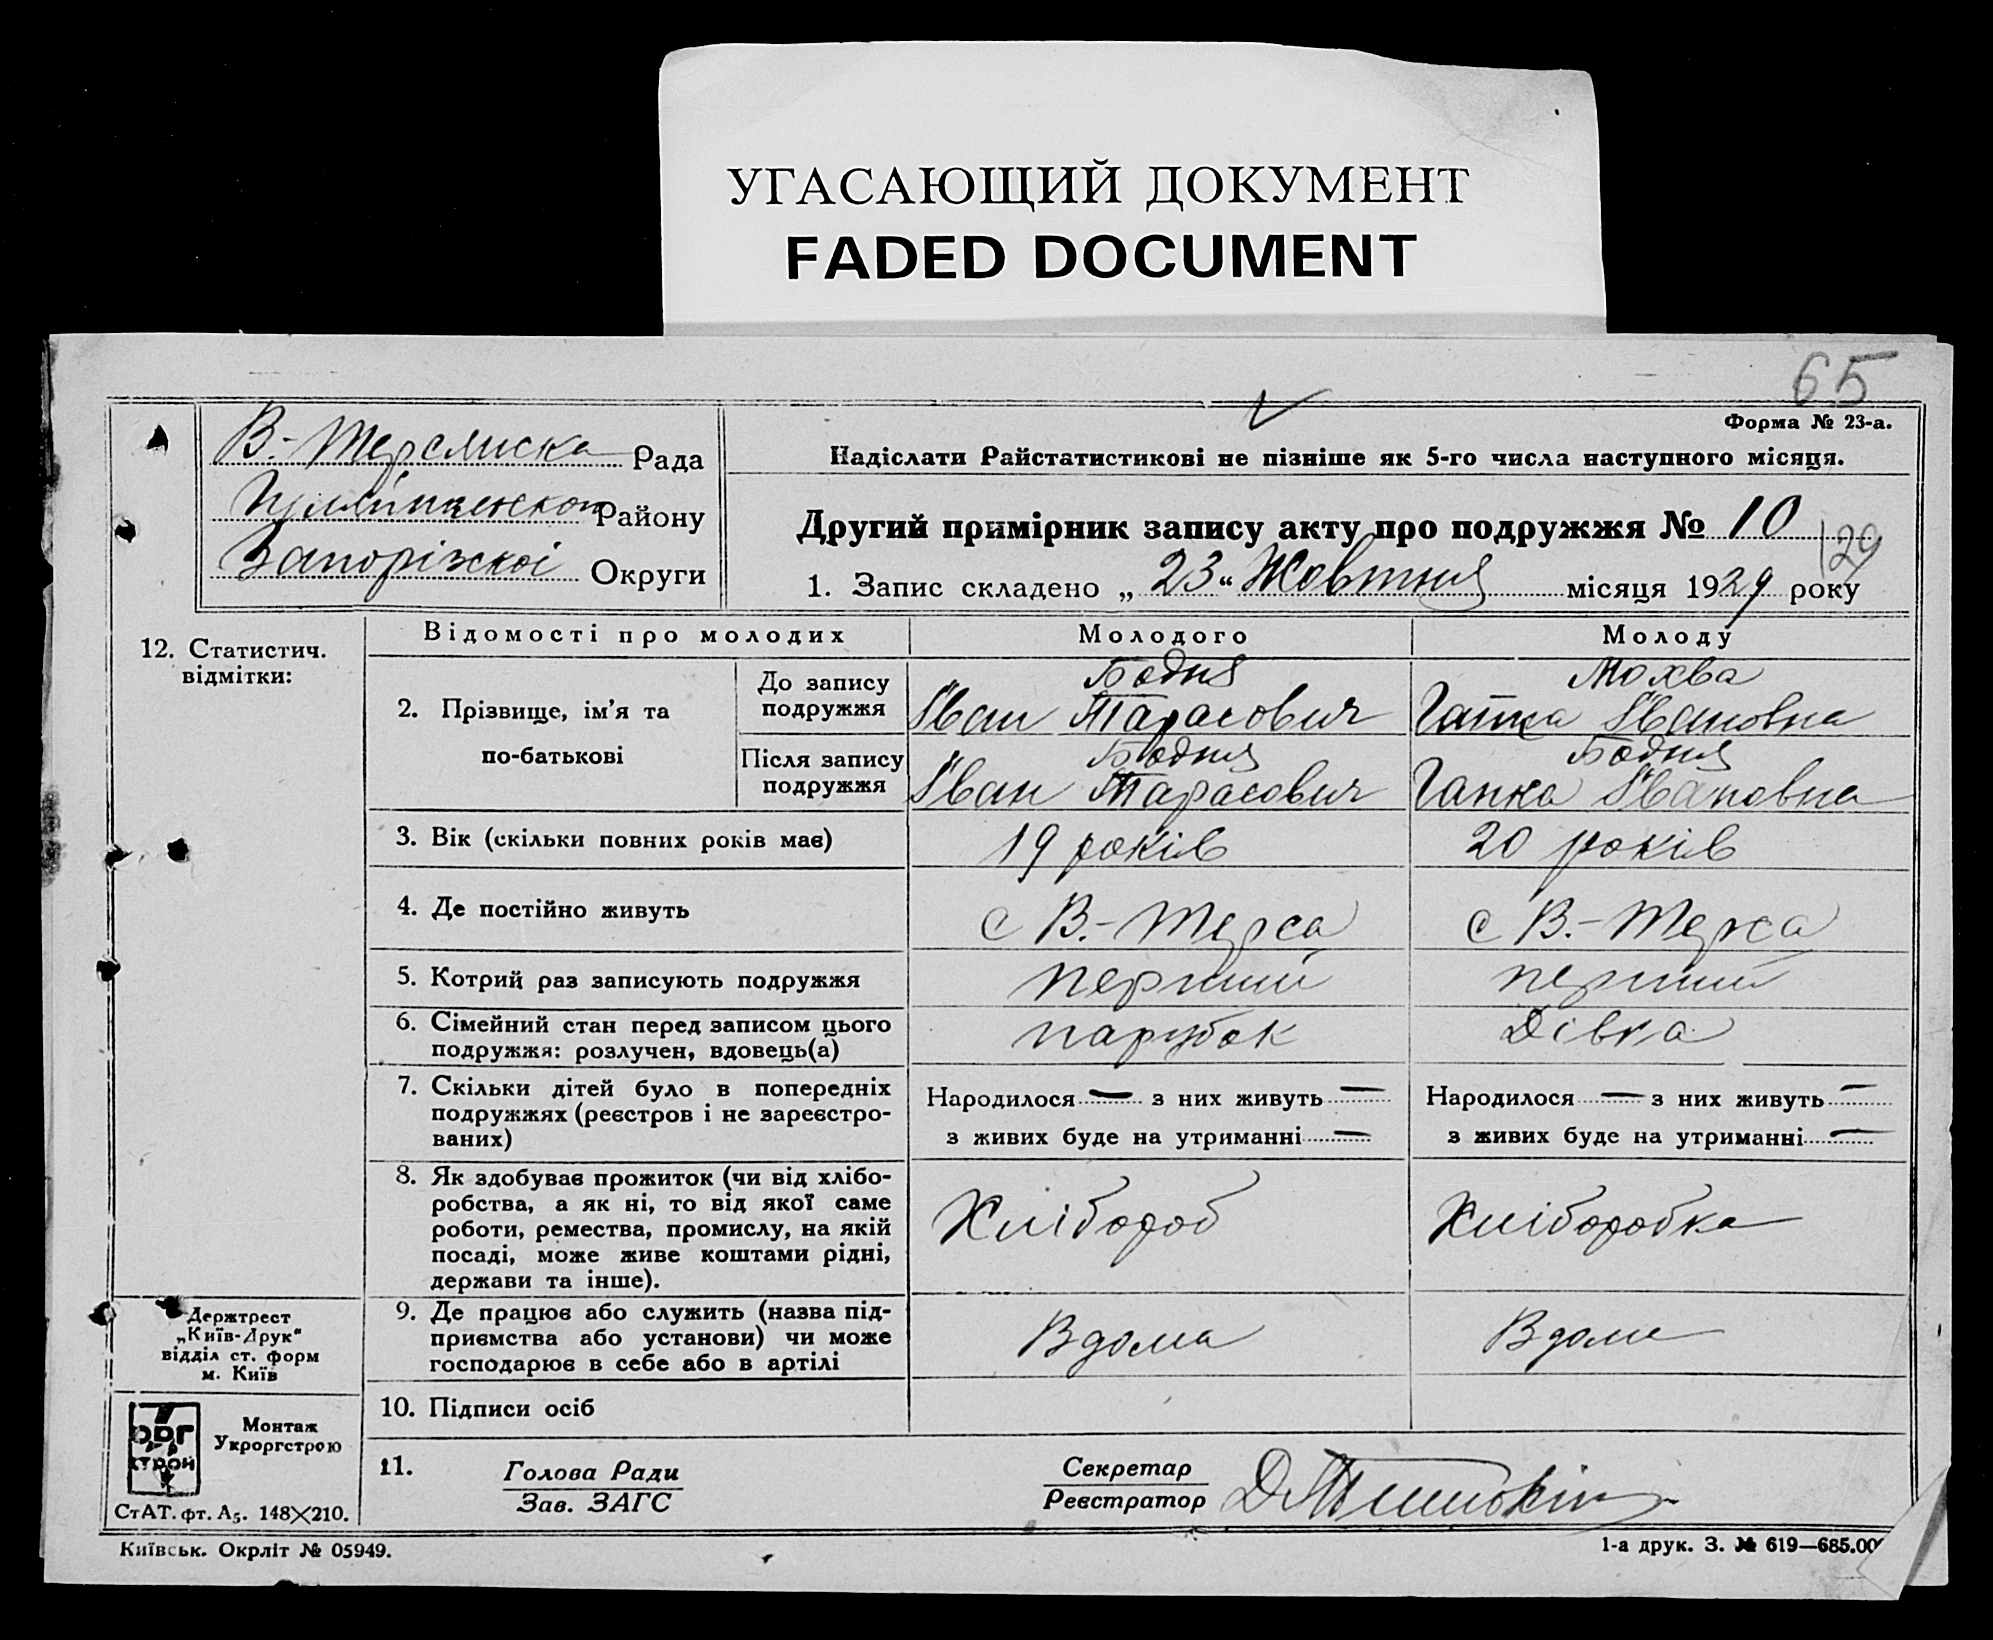 УГАСАЮЩИЙ ДОКУМЕНТ
FADED DOCUMENT
65
Форма № 23-а.
В.-Терсянска Рада
Району
Запоріжскої Округи
Надіслати Райстатистикові не пізніше як 5-го числа наступного місяця.
Другий примірник запису акту про подружжя № 10
29
1. Запис складено „ 23 “ Жовтня місяця 1929 року
12. Статистич.
відмітки:
Відомості про молодих
Молодого
Молоду
2. Прізвище, ім’я та
по-батькові
До запису
подружжя
Бодня
Іван Тарасович
Мохва
Гапка Івановна
Після запису
подружжя
Бодня
Іван Тарасович
Бодня
Гапка Івановна
3. Вік (скільки повних років має)
19 років
20 років
4. Де постійно живуть
с В.-Терса
с В.-Терса
5. Котрий раз записують подружжя
перший
перший
6. Сімейний стан перед записом цього
подружжя: розлучен, вдовець(а)
парубок
Дівка
7. Скільки дітей було в попередніх
подружжях (реєстров і не зареєстро-
ваних)
Народилося — з них живуть —
з живих буде на утриманні —
Народилося — з них живуть —
з живих буде на утриманні —
8. Як здобував прожиток (чи від хлібо-
робства, а як ні, то від якої саме
роботи, ремества, промислу, на якій
посаді, може живе коштами рідні,
держави та інше).
Хлібороб
Хліборобка
9. Де працює або служить (назва під-
приємства або установи) чи може
господарює в себе або в артілі
Вдома
Вдома
10. Підписи осіб
11.
Голова Ради
Зав. ЗАГС
Секретар
Реєстратор
Держтрест
„Київ-Друк“
відділ ст. форм
м. Київ
ОРГ
СТРОЙ
Монтаж
Укроргстрою
СтАТ. фт. А5. 148×210.
Київськ. Окрліт № 05949.
1-а друк. З. № 619—685.00